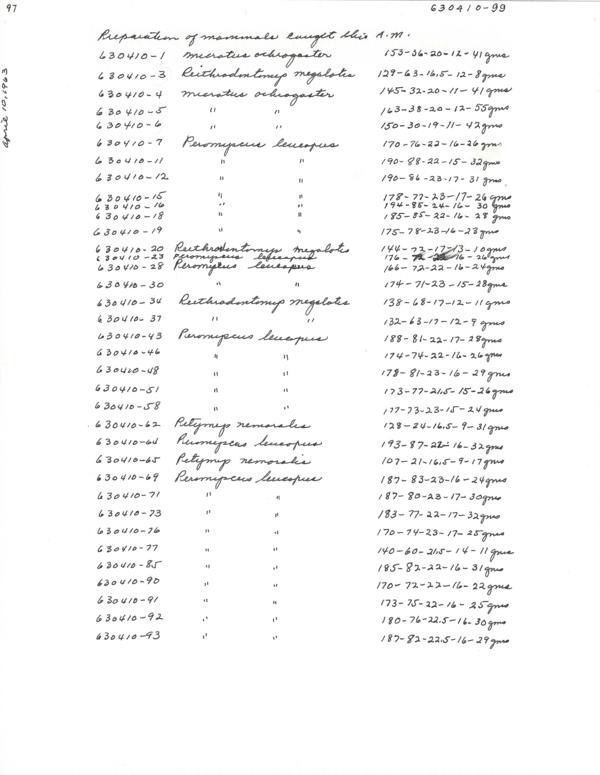 97
630410-99
April 10, 1963
Preparation of mammals caught this A.M.
630410-1 Microtus ochrogaster 153-36-20-12-41gms
630410-3 Reithrodontomys megalotis 129-63-16.5-12-8gms
630410-4 Microtus ochrogaster 145-32-20-11-41gms
630410-5 " " 163-38-20-12-55gms
630410-6 " " 150-30-19-11-42gms
630410-7 Peromyscus leucopus 170-76-22-16-26gms
630410-11 " " 190-88-22-15-32gms
630410-12 " " 190-86-23-17-31 gms
630410-15 " " 178-77-23-17-26gms
630410-16 " " 194-85-24-16-30gms
630410-18 " " 185-85-22-16-28 gms
630410-19 " " 175-78-23-16-28gms
630410-20 Reithrodontomys megalotis 144-72-17-13-10gms
630410-23 Peromyscus leucopus 176- -16-26gms
630410-28 Peromyscus leucopus 166-72-22-16-24gms
630410-30 " " 174-71-23-15-28gms
630410-34 Reithrodontomys megalotis 138-68-17-12-11gms
630410-37 " " 132-63-17-12-9 gms
630410-43 Peromyscus leucopus 188-81-22-17-28gms
630410-46 " " 174-74-22-16-26gms
630410-48 " " 178-81-23-16-29gms
630410-51 " " 173-77-21.5-15-26gms
630410-58 " " 177-73-23-15-24gms
630410-62 Pitymys nemoralis 128-24-16.5-9-31gms
630410-64 Peromyscus leucopus 193-87-22-16-32gms
630410-65 Pitymys nemoralis 107-21-16.5-9-17gms
630410-69 Peromyscus leucopus 187-83-23-16-24gms
630410-71 " " 187-80-23-17-30gms
630410-73 " " 183-77-22-17-32gms
630410-76 " " 170-74-23-17-25gms
630410-77 " " 140-60-21.5-14-11gms
630410-85 " " 185-82-22-16-31gms
630410-90 " " 170-72-22-16-22gms
630410-91 " " 173-75-22-16-25gms
630410-92 " " 180-76-22.5-16-30gms
630410-93 " " 187-82-22.5-16-29gms